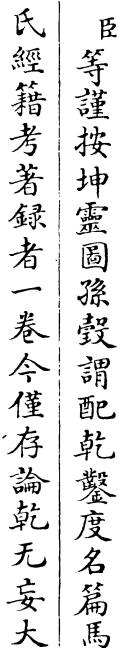 臣等謹按坤靈圖孫瑴謂配乾鑿度名篇馬
氏經籍考著録者一卷今僅存論乾无妄大